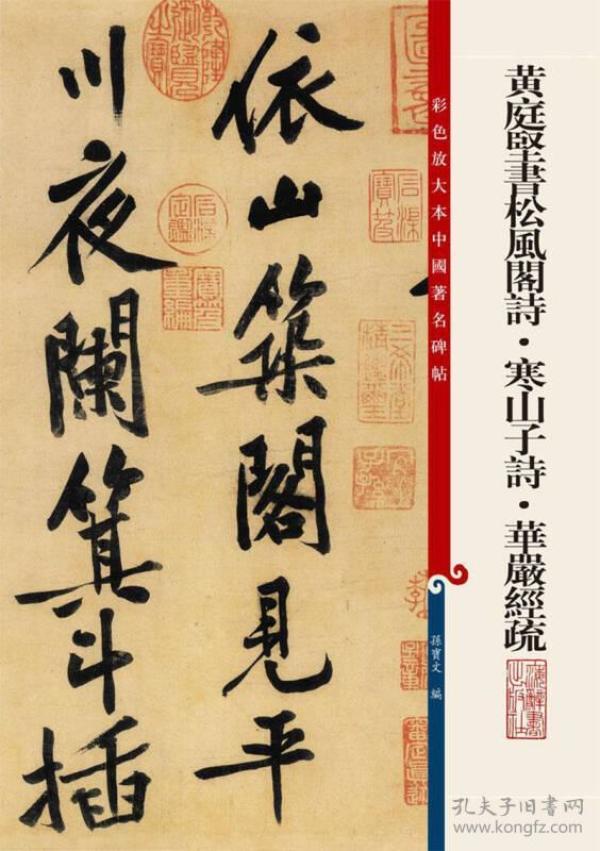 黄庭堅書松風閣詩・寒山子詩・華嚴經疏
彩色放大本中國著名碑帖
孫寶文 編
依山築閣見平
川夜闌箕斗插
孔夫子旧书网
www.kongfz.com